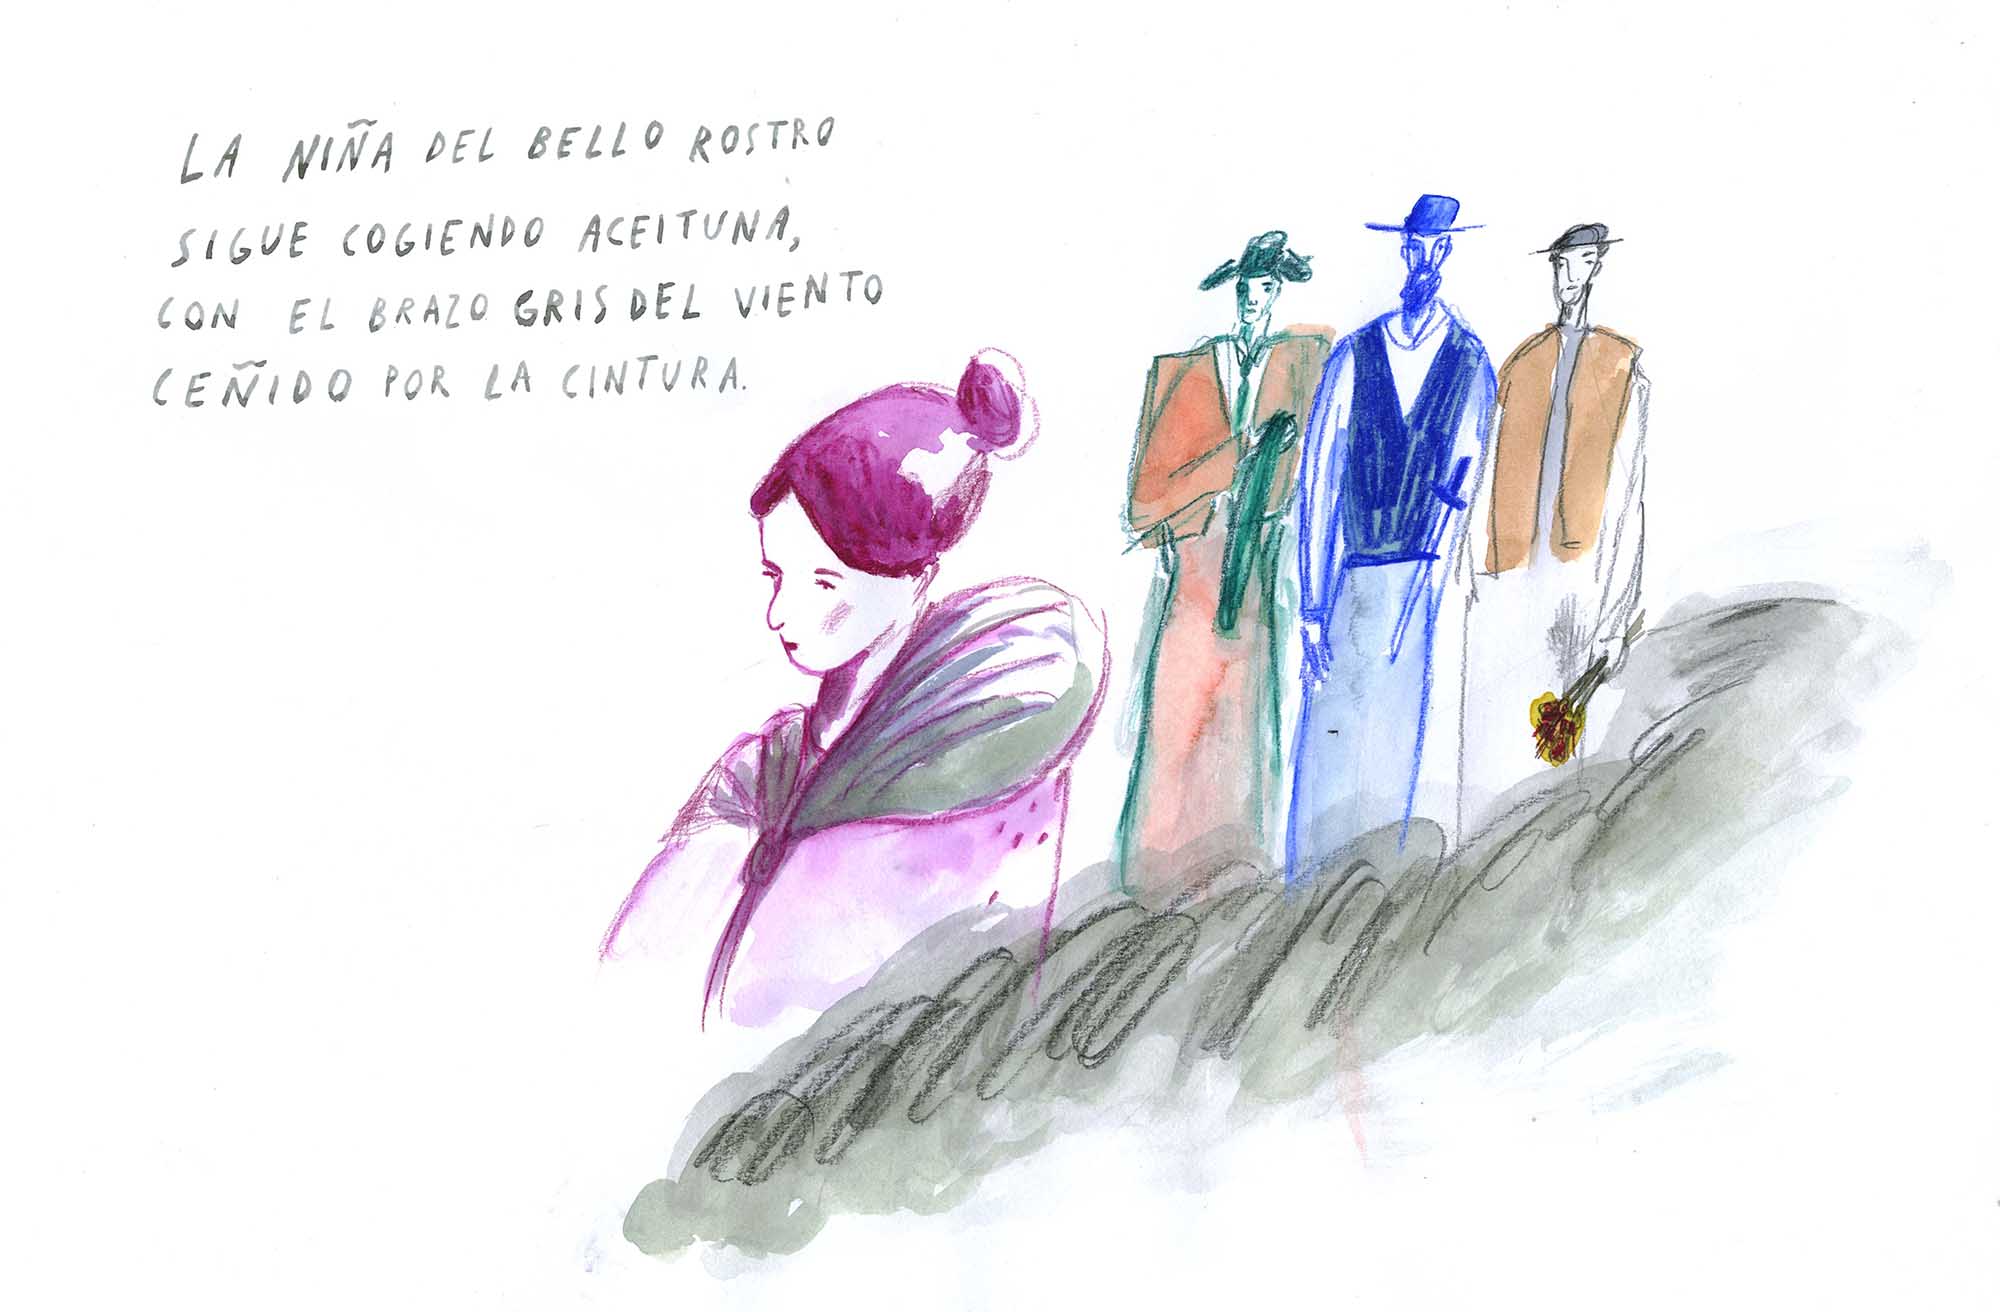 LA NIÑA DEL BELLO ROSTRO
SIGUE COGIENDO ACEITUNA,
CON EL BRAZO GRIS DEL VIENTO
CEÑIDO POR LA CINTURA.